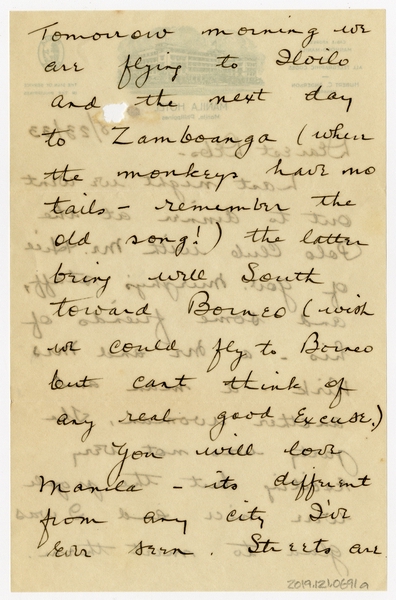 Tomorrow morning we
are flying to Iloilo
and the next day
to Zamboanga (where
the monkeys have no
tails - remember the
old song!) the latter
being well South
toward Borneo (wish
we could fly to Borneo
but cant think of
any real good excuse.)
You will love
Manila - its different
from any city I've
ever seen. Streets are
2019.121.0691a